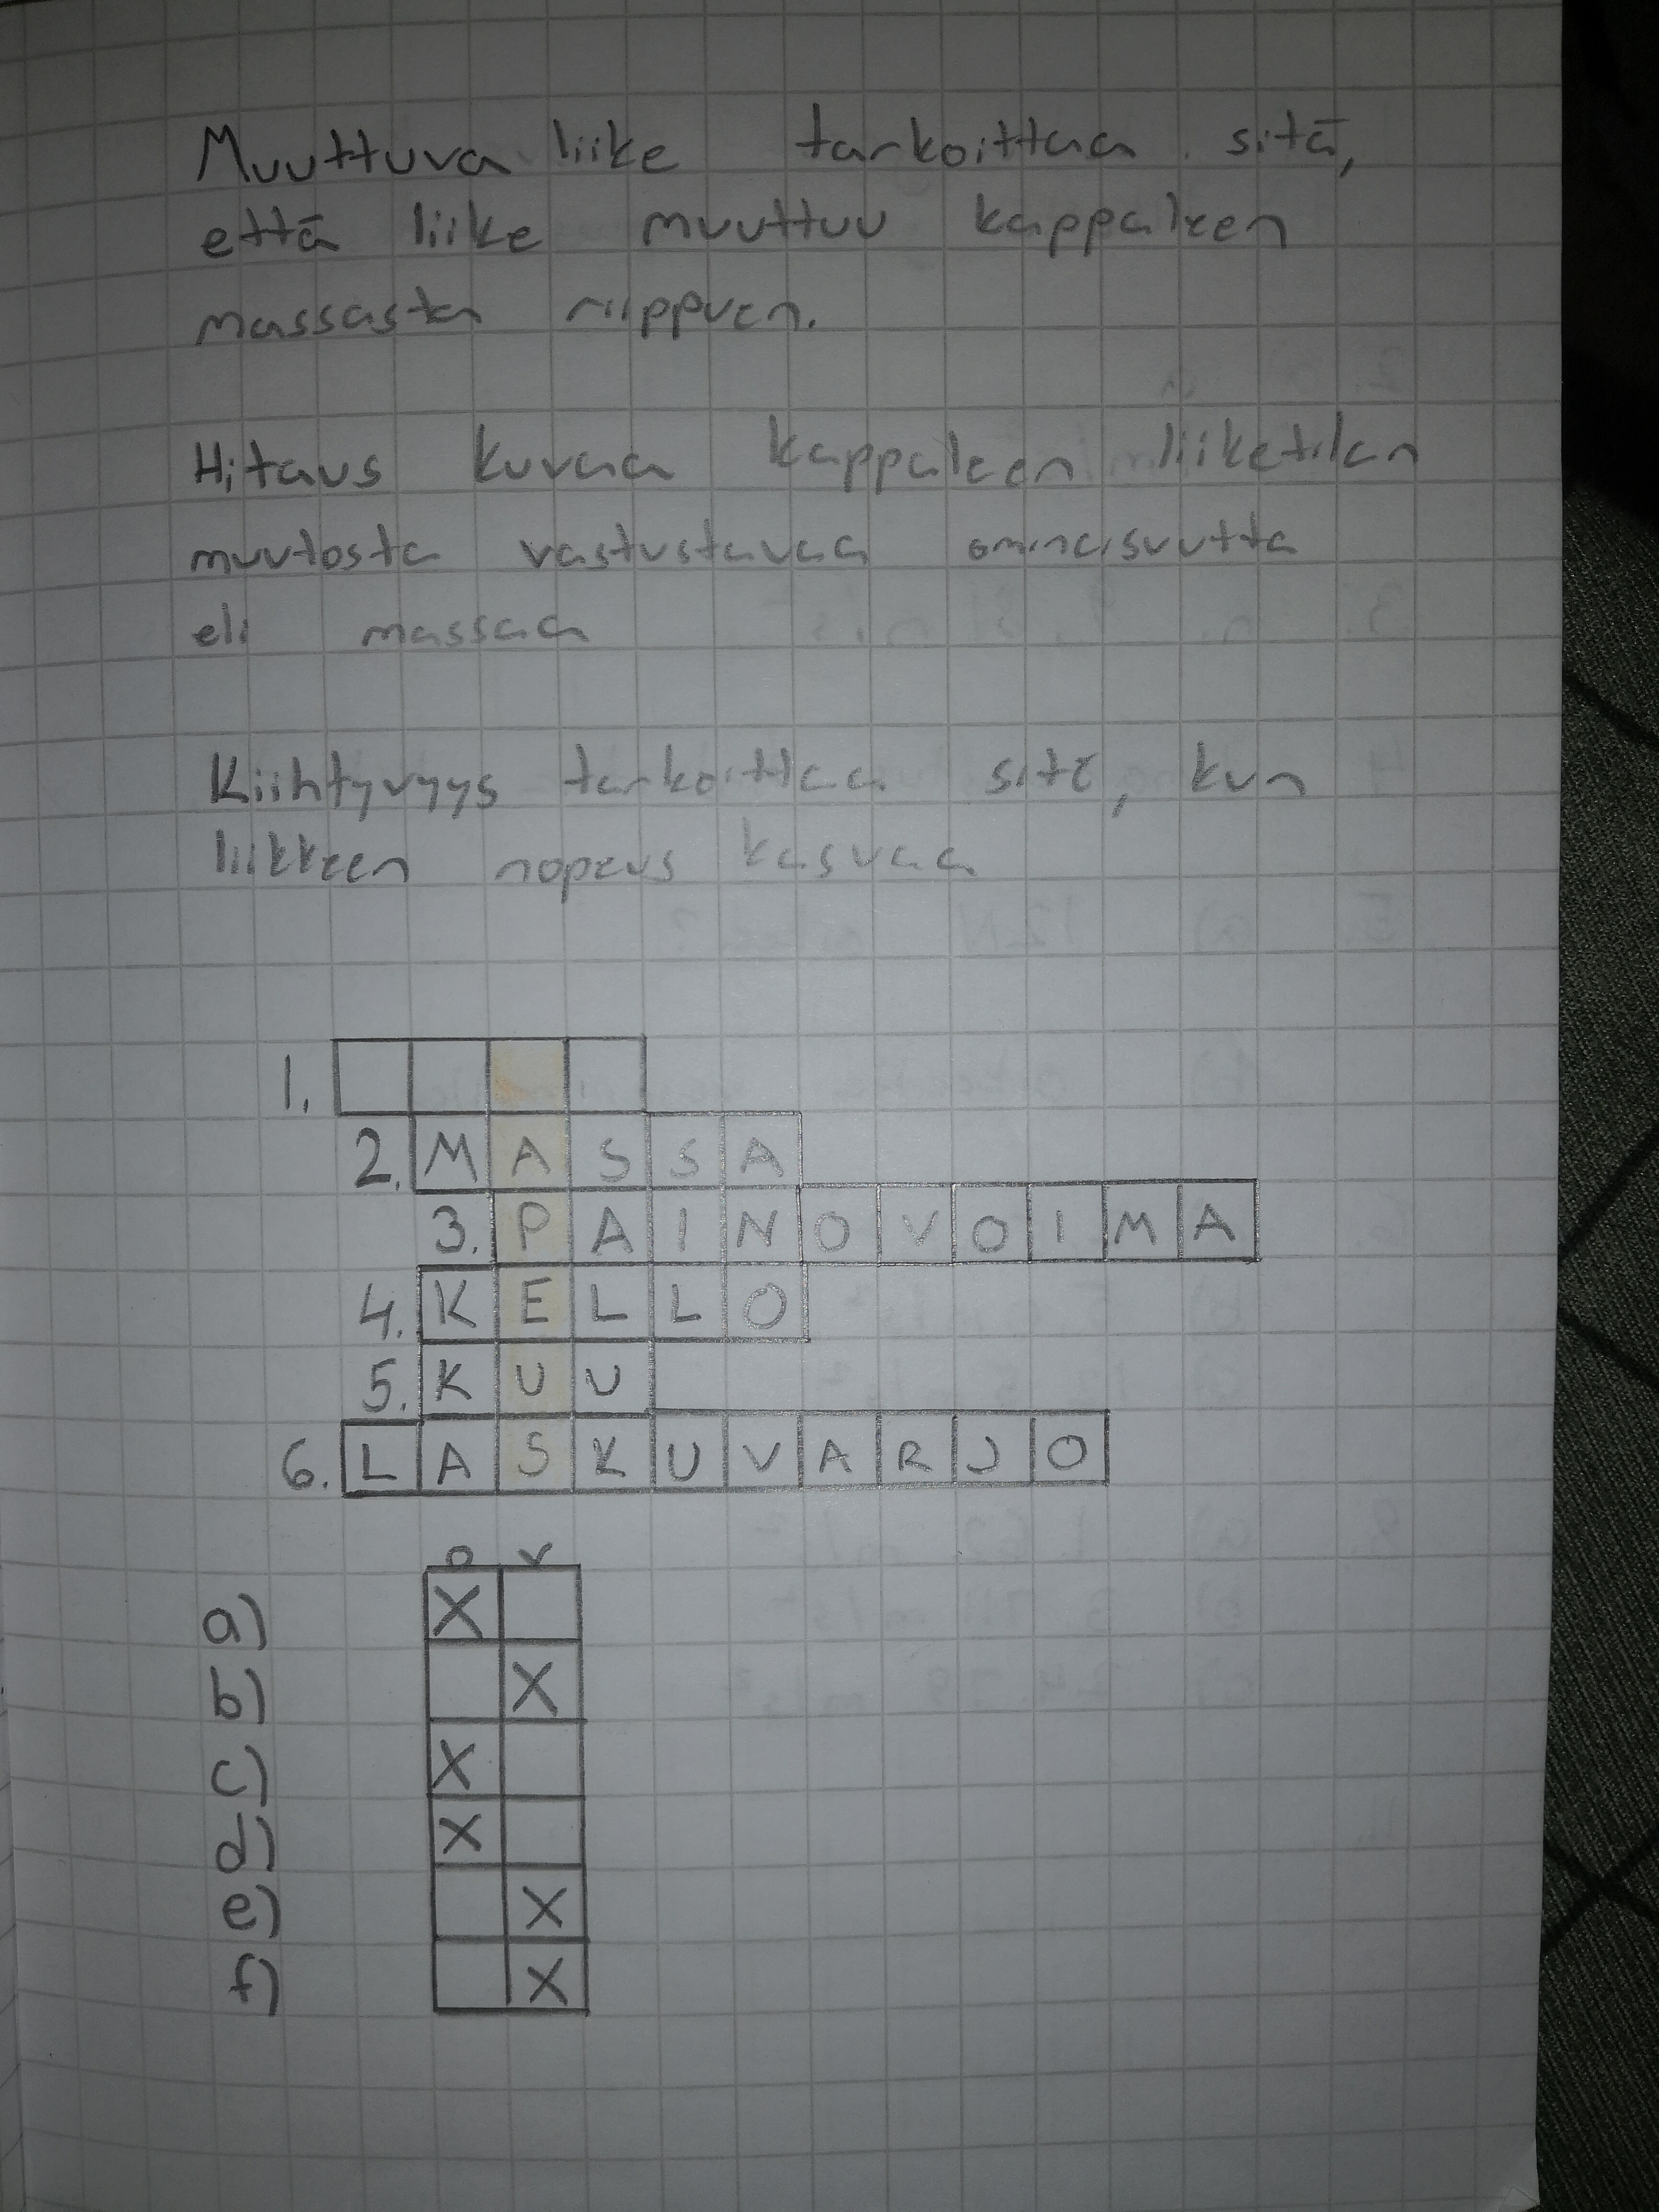 Muuttuva liike tarkoittaa sitä,
että liike muuttuu kappaleen
massasta riippuen.
Hitaus kuvaa kappaleen liiketilan
muutosta vastustavaa ominaisuutta
eli massaa
Kiihtyvyys tarkoittaa sitä, kun
liikkeen nopeus kasvaa
1.
2. MASSA
3. PAINOVOIMA
4. KELLO
5. KUU
6. LASKUVARJO
O V
a) X
b) X
c) X
d) X
e) X
f) X